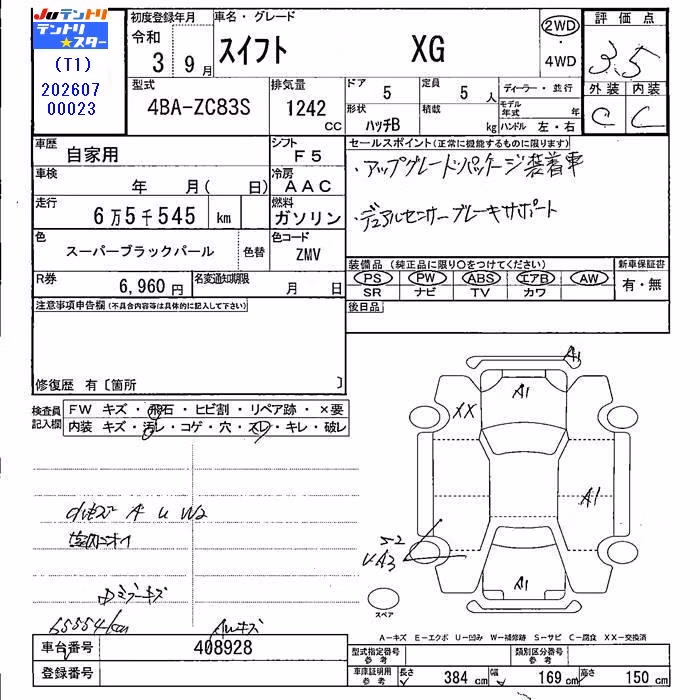 Juテントリ
テントリ★スター
(T1)
202607
00023
初度登録年月
令和
3 9月
車名・グレード
スイフト XG
2WD
・
4WD
評価点
3.5
外装 内装
C C
型式
4BA-ZC83S
排気量
1242
CC
ドア
5
定員
5人
形状
ハッチB
積載
kg
ディーラー・並行
モデル年式 年
ハンドル 左・右
車歴
自家用
シフト
F5
車検
年 月( 日)
冷房
AAC
走行
6万5千545 km
燃料
ガソリン
色
スーパーブラックパール
色替
色コード
ZMV
R券
6,960円
名変通知期限
月 日
セールスポイント(正常に機能するものに限ります)
・アップグレードパッケージ装着車
・デュアルセンサーブレーキサポート
装備品(純正品に限り○をつけてください)
PS PW ABS エアB AW
SR ナビ TV カワ
新車保証書
有・無
後日品
注意事項申告欄(不具合内容等は具体的に記入して下さい)
修復歴 有〔箇所 〕
検査員記入欄
FW キズ・飛石・ヒビ割・リペア跡・×要
内装 キズ・汚レ・コゲ・穴・スレ・キレ・破レ
A U W2
室内ニオイ
ミラーキズ
65554km
AWキズ
A1
A1
XX
A1
A1
スペア
A-キズ E-エクボ U-凹み W-補修跡 S-サビ C-腐食 XX-交換済
車台番号
408928
登録番号
型式指定番号
参考
類別区分番号
参考
車庫証明用
参考
長さ
384 cm
幅
169 cm
高さ
150 cm